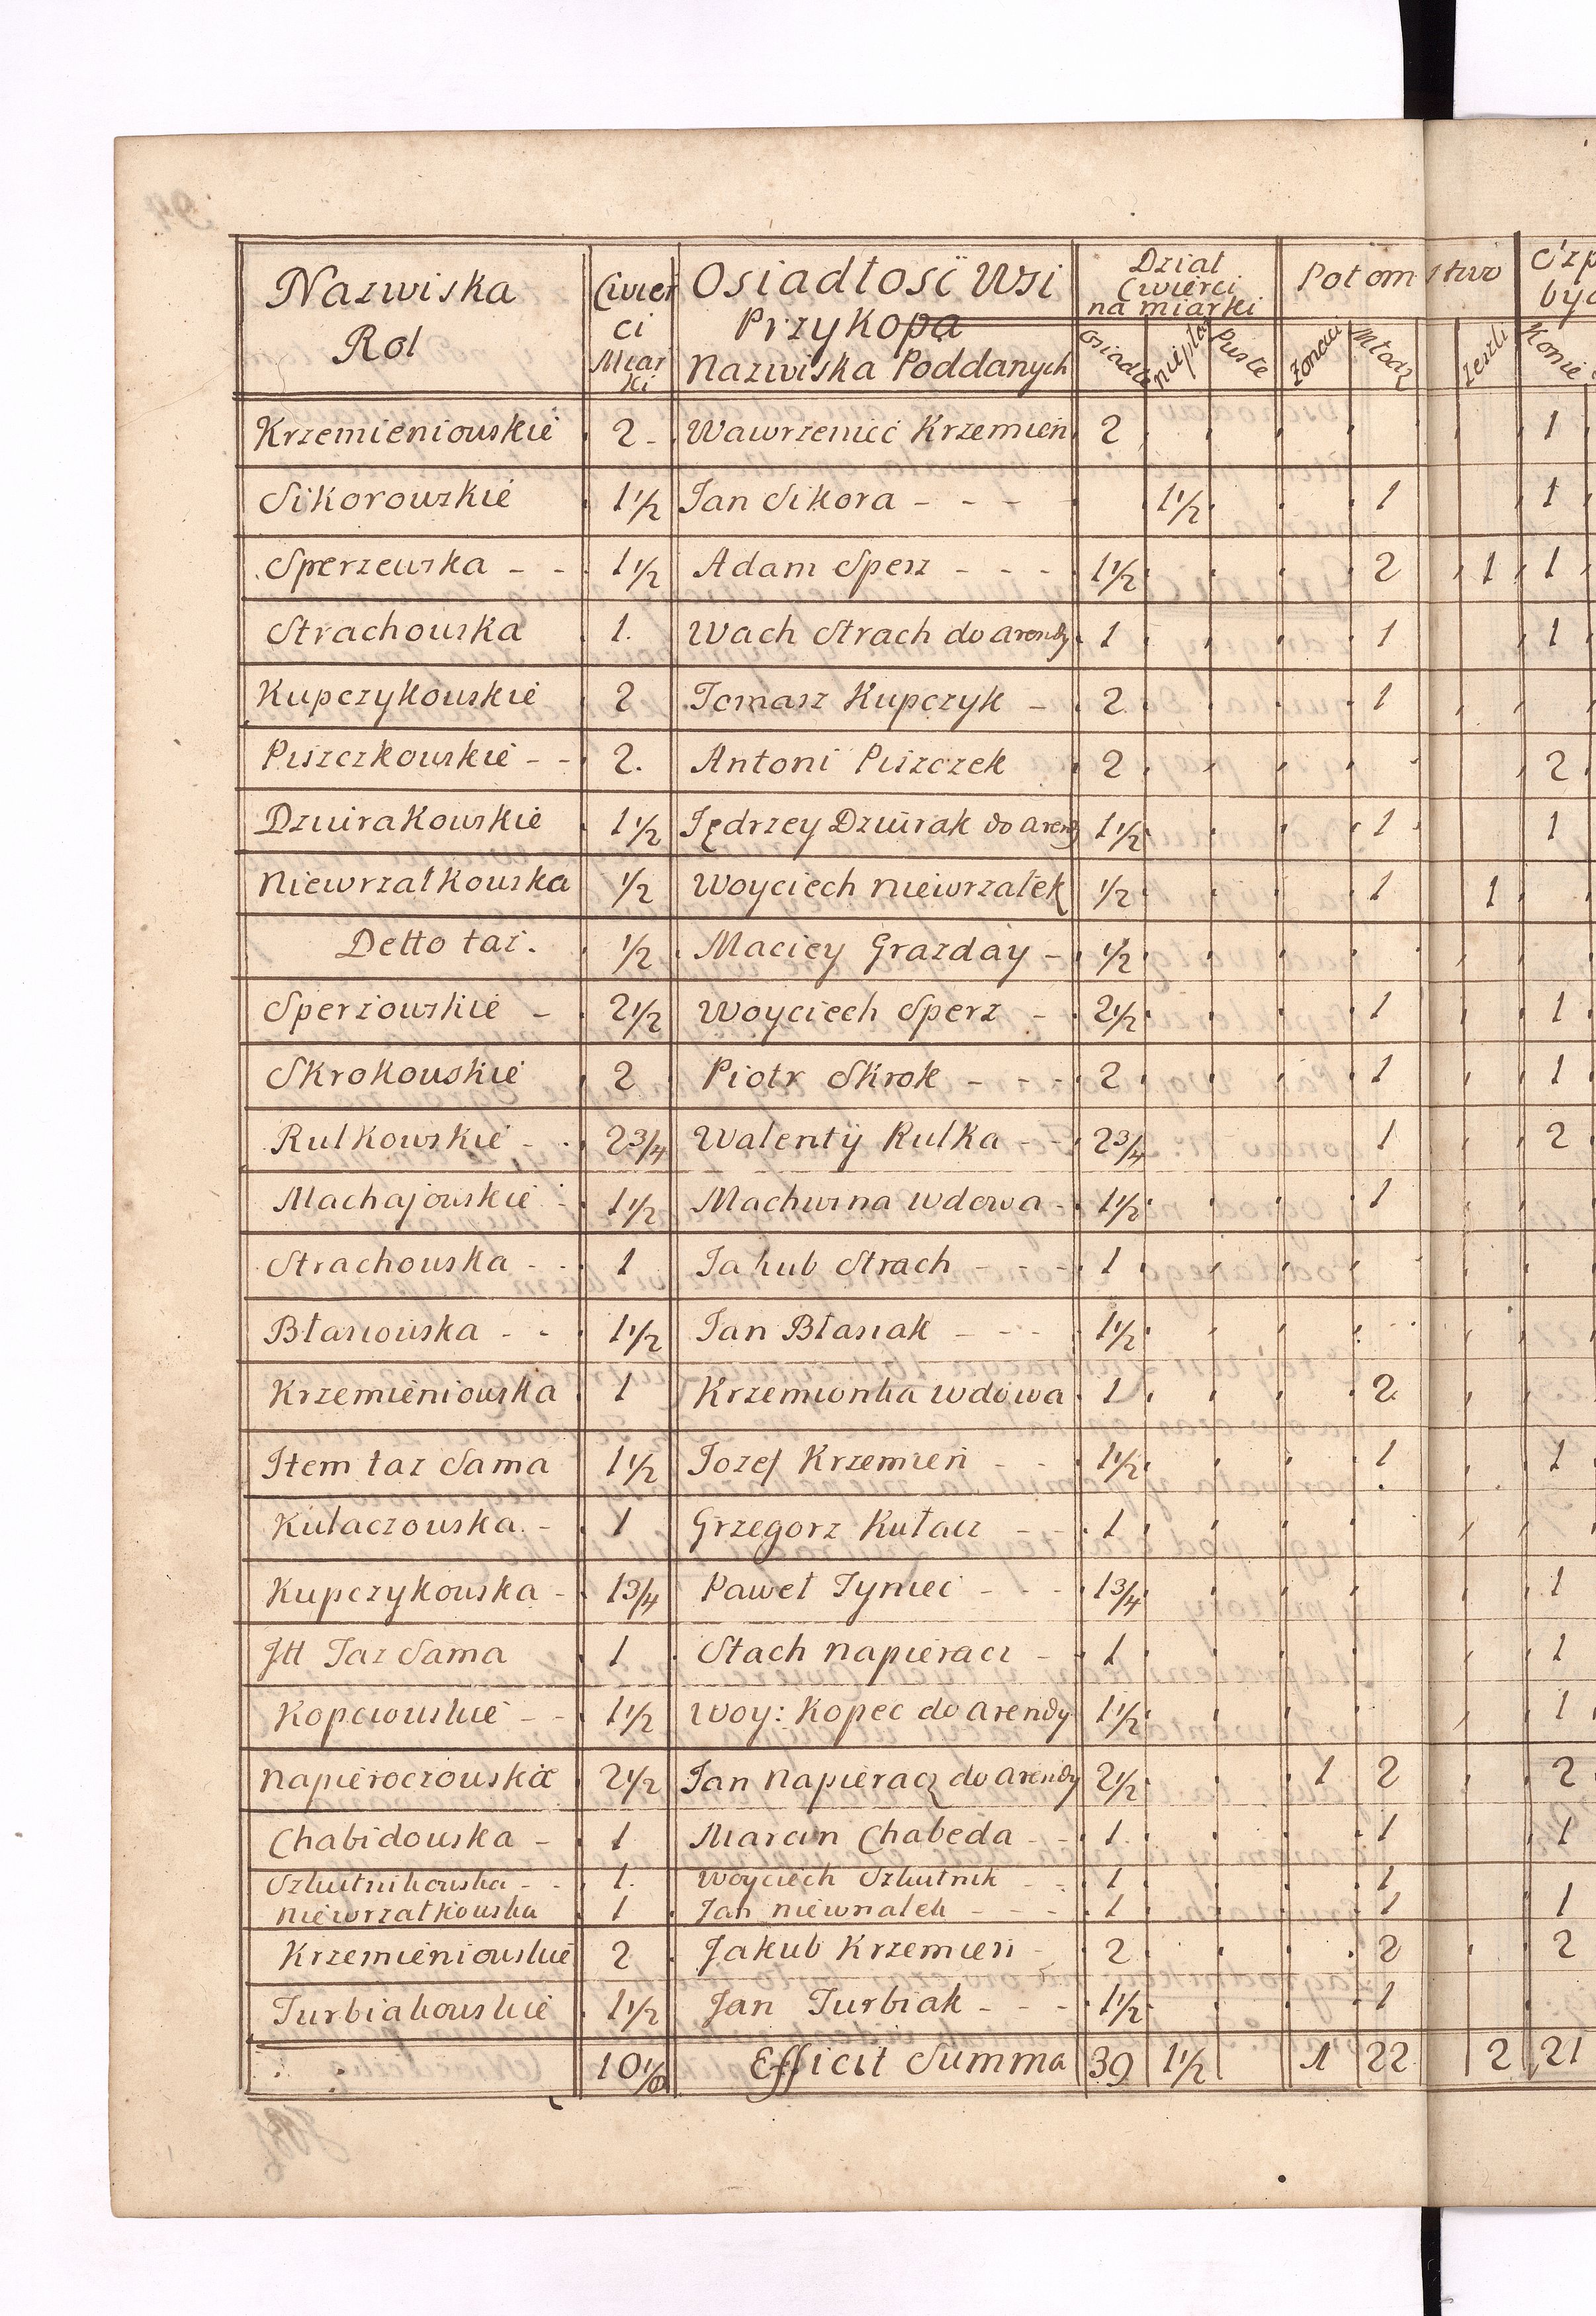 Nazwiska Rol | Cwierci Miarki | Osiadłosć Wsi Przykopa Nazwiska Poddanych | Dział Cwierci na miarki | Potomstwo
Osiadł | niepła | Puste | Zonaci | Młodz | Zeszli | Konie
Krzemieniouskie | 2 - | Wawrzeniec Krzemien | 2 | 1
Sikorouskie | 1 1/2 | Jan Sikora - - - | 1 1/2 | 1 | 1
Sperzewska - - | 1 1/2 | Adam Spesz - - - | 1 1/2 | 2 | 1 | 1
Strachouska | 1. | Wach Strach do arendy | 1 | 1 | 1
Kupczykouskie | 2 | Tomasz Kupczyk - | 2 | 1
Piszczkouskie - - | 2. | Antoni Piszczek | 2 | 2
DziuraKowskie | 1 1/2 | Jędrzey Dziurak do arend | 1 1/2 | 1 | 1
Niewrzałkouska | 1/2 | Woyciech niewrzałek | 1/2 | 1 | 1
Detto taż. | 1/2 | Maciey Grazday - | 1/2
Sperzouskie - | 2 1/2 | Woyciech Sperz - | 2 1/2 | 1 | 1
Skrokouskie | 2 | Piotr Skrok - - - | 2 | 1 | 1
Rulkowskie - | 2 3/4 | Walenty Rulka - - | 2 3/4 | 1 | 2
Machajouskie | 1 1/2 | Machwina wdowa - | 1 1/2 | 1
Strachouska - - | 1 | Jakub Strach - - - | 1
Błasiouska - - | 1 1/2 | Jan Błasiak - - - | 1 1/2
Krzemieniouska | 1 | Krzemionka wdowa | 1 | 2
Item taz Sama | 1 1/2 | Jozef Krzemien - - | 1 1/2 | 1 | 1
Kułaczouska - | 1 | Grzegorz Kułacz - - | 1
Kupczykouska - | 1 3/4 | Paweł Tyniec - - - | 1 3/4 | 1
Itt Taz Sama | 1 | Stach Napieracz - | 1 | 1
Kopciouskie - - | 1 1/2 | Woy: Kopec do arendy | 1 1/2 | 1
Napieroczouskie | 2 1/2 | Jan Napieracz do arendy | 2 1/2 | 1 | 2 | 2
Chabidouska - | 1 | Marcin Chabeda - - | 1 | 1 | 1
Szkutnikouska - - | 1. | Woyciech Szkutnik - - | 1 | 1
Niewrzałkouska | 1 | Jan niewrzałek - - - | 1 | 1 | 1
Krzemieniouskie | 2 | Jakub Krzemien - | 2 | 2 | 2
Turbiakouskie | 1 1/2 | Jan Turbiak - - - | 1 1/2 | 1
Efficit Summa | 39 | 1 1/2 | 1 | 22 | 2 | 21